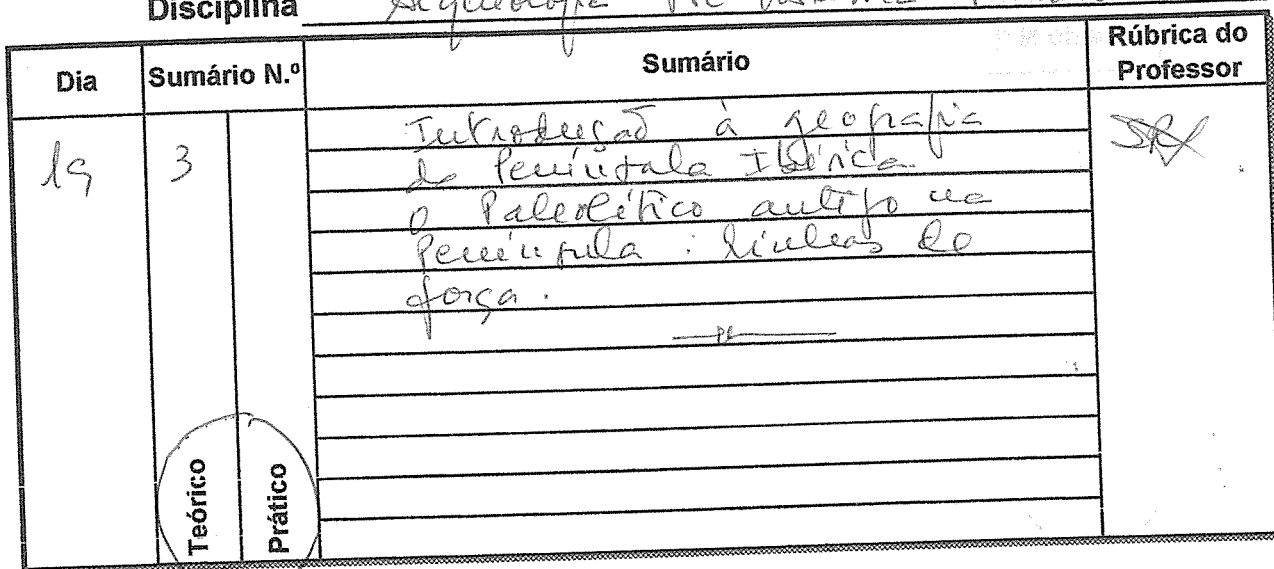 Disciplina Arqueologia
Dia
Sumário N.º
Sumário
Rúbrica do
Professor
19
3
Introdução à geografia
da Península Ibérica.
O Paleolítico antigo na
Península: linhas de
força.
Teórico
Prático